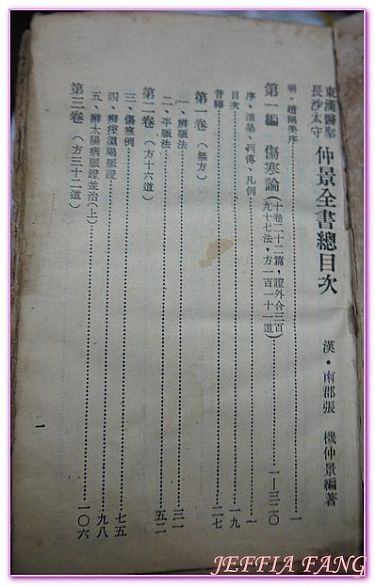 東漢醫聖
長沙太守
仲景全書總目次
漢・南郡張 機仲景編著
明・趙開美序 一
第一編 傷寒論(十卷二十二篇,證外合三百九十七法,方一百一十一道) 一—三二〇
序、醫學、列傳、凡例 一
目次 一九
音釋 二七
第一卷(無方)
一、辨脈法 三一
二、平脈法 五二
第二卷(方十六道)
三、傷寒例 七五
四、辨痙濕暍脈證 九八
五、辨太陽病脈證並治(上) 一〇六
第三卷(方三十二道)
一
JEFFIA FANG